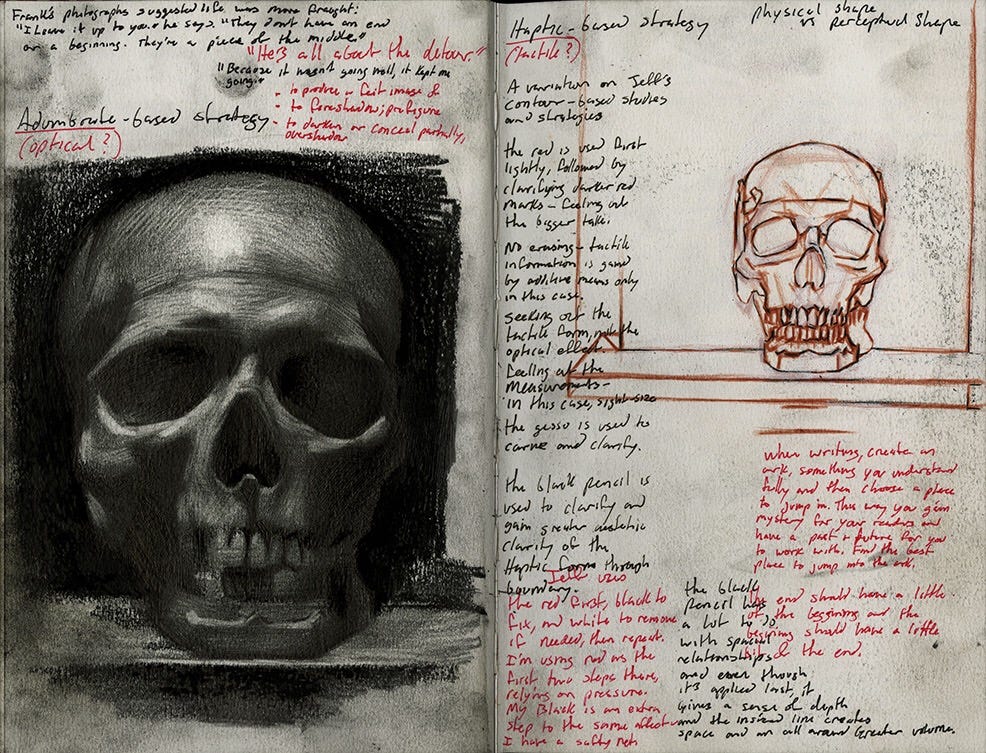 Frank's photographs suggested life was more fraught:
"I leave it up to you," he says. "They don't have an end
or a beginning. They're a piece of the middle."
"He's all about the detour."
"Because it wasn't going well, it kept me
going."
- to produce a faint image of
- to foreshadow; prefigure
- to darken or conceal partially,
overshadow
Adumbrate-based strategy
(optical?)
Haptic-based strategy
(tactile?)
physical shape
vs perceptual shape
A variation on Jeff's
contour-based studies
and strategies
the red is used first
lightly, followed by
clarifying darker red
marks - feeling out
the bigger take.
No erasing - tactile
information is gained
by additive means only
in this case.
seeking out the
tactile form, not the
optical effect
feeling out the
measurements -
in this case, sight-size
the gesso is used to
carve and clarify.
the black pencil is
used to clarify and
gain greater aesthetic
clarity of the
Haptic forms through
boundary.
Jeff uses
the red first, black to
fix, and white to remove
if needed, then repeat.
I'm using red as the
first two steps there,
relying on pressure.
My Black is an extra
step to the same affect
I have a safty net
when writing, create an
ark, something you understand
fully and then choose a place
to jump in. This way you gain
mystery for your readers and
have a past + future for you
to work with. Find the best
place to jump into the ark.
the end should have a little
of the beginning and the
beginning should have a little
bit of the end.
the black
pencil has
a lot to do
with spacial
relationships
and even though
it's applied last, it
gives a sense of depth
and the incised line creates
space and an all around Greater volume.